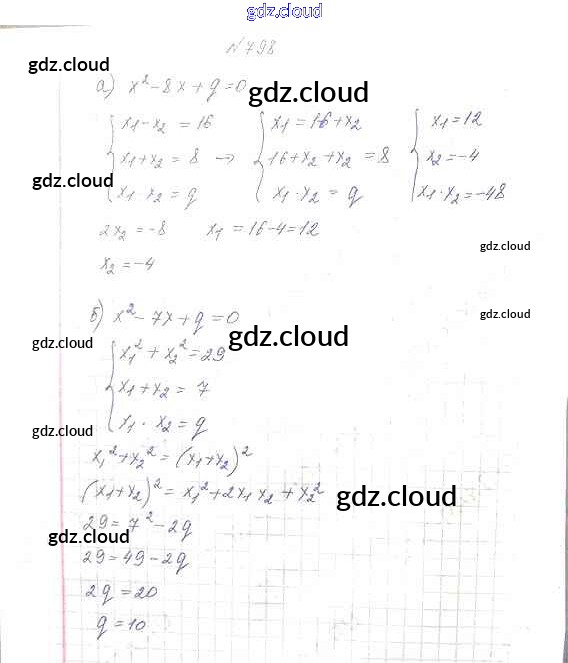 gdz.cloud
№798
gdz.cloud
а) x² - 8x + q = 0
gdz.cloud
{ x₁ - x₂ = 16 { x₁ = 16 + x₂ { x₁ = 12
x₁ + x₂ = 8 → 16 + x₂ + x₂ = 8 x₂ = -4
gdz.cloud
x₁ x₂ = q x₁ · x₂ = q x₁ · x₂ = -48
2x₂ = -8 x₁ = 16 - 4 = 12
gdz.cloud
x₂ = -4
б) x² - 7x + q = 0
gdz.cloud
gdz.cloud
gdz.cloud
{ x₁² + x₂² = 29
x₁ + x₂ = 7
x₁ · x₂ = q
gdz.cloud
x₁² + x₂² = (x₁ + x₂)²
(x₁ + x₂)² = x₁² + 2x₁ x₂ + x₂²
gdz.cloud
29 = 7² - 2q
gdz.cloud
29 = 49 - 2q
2q = 20
q = 10